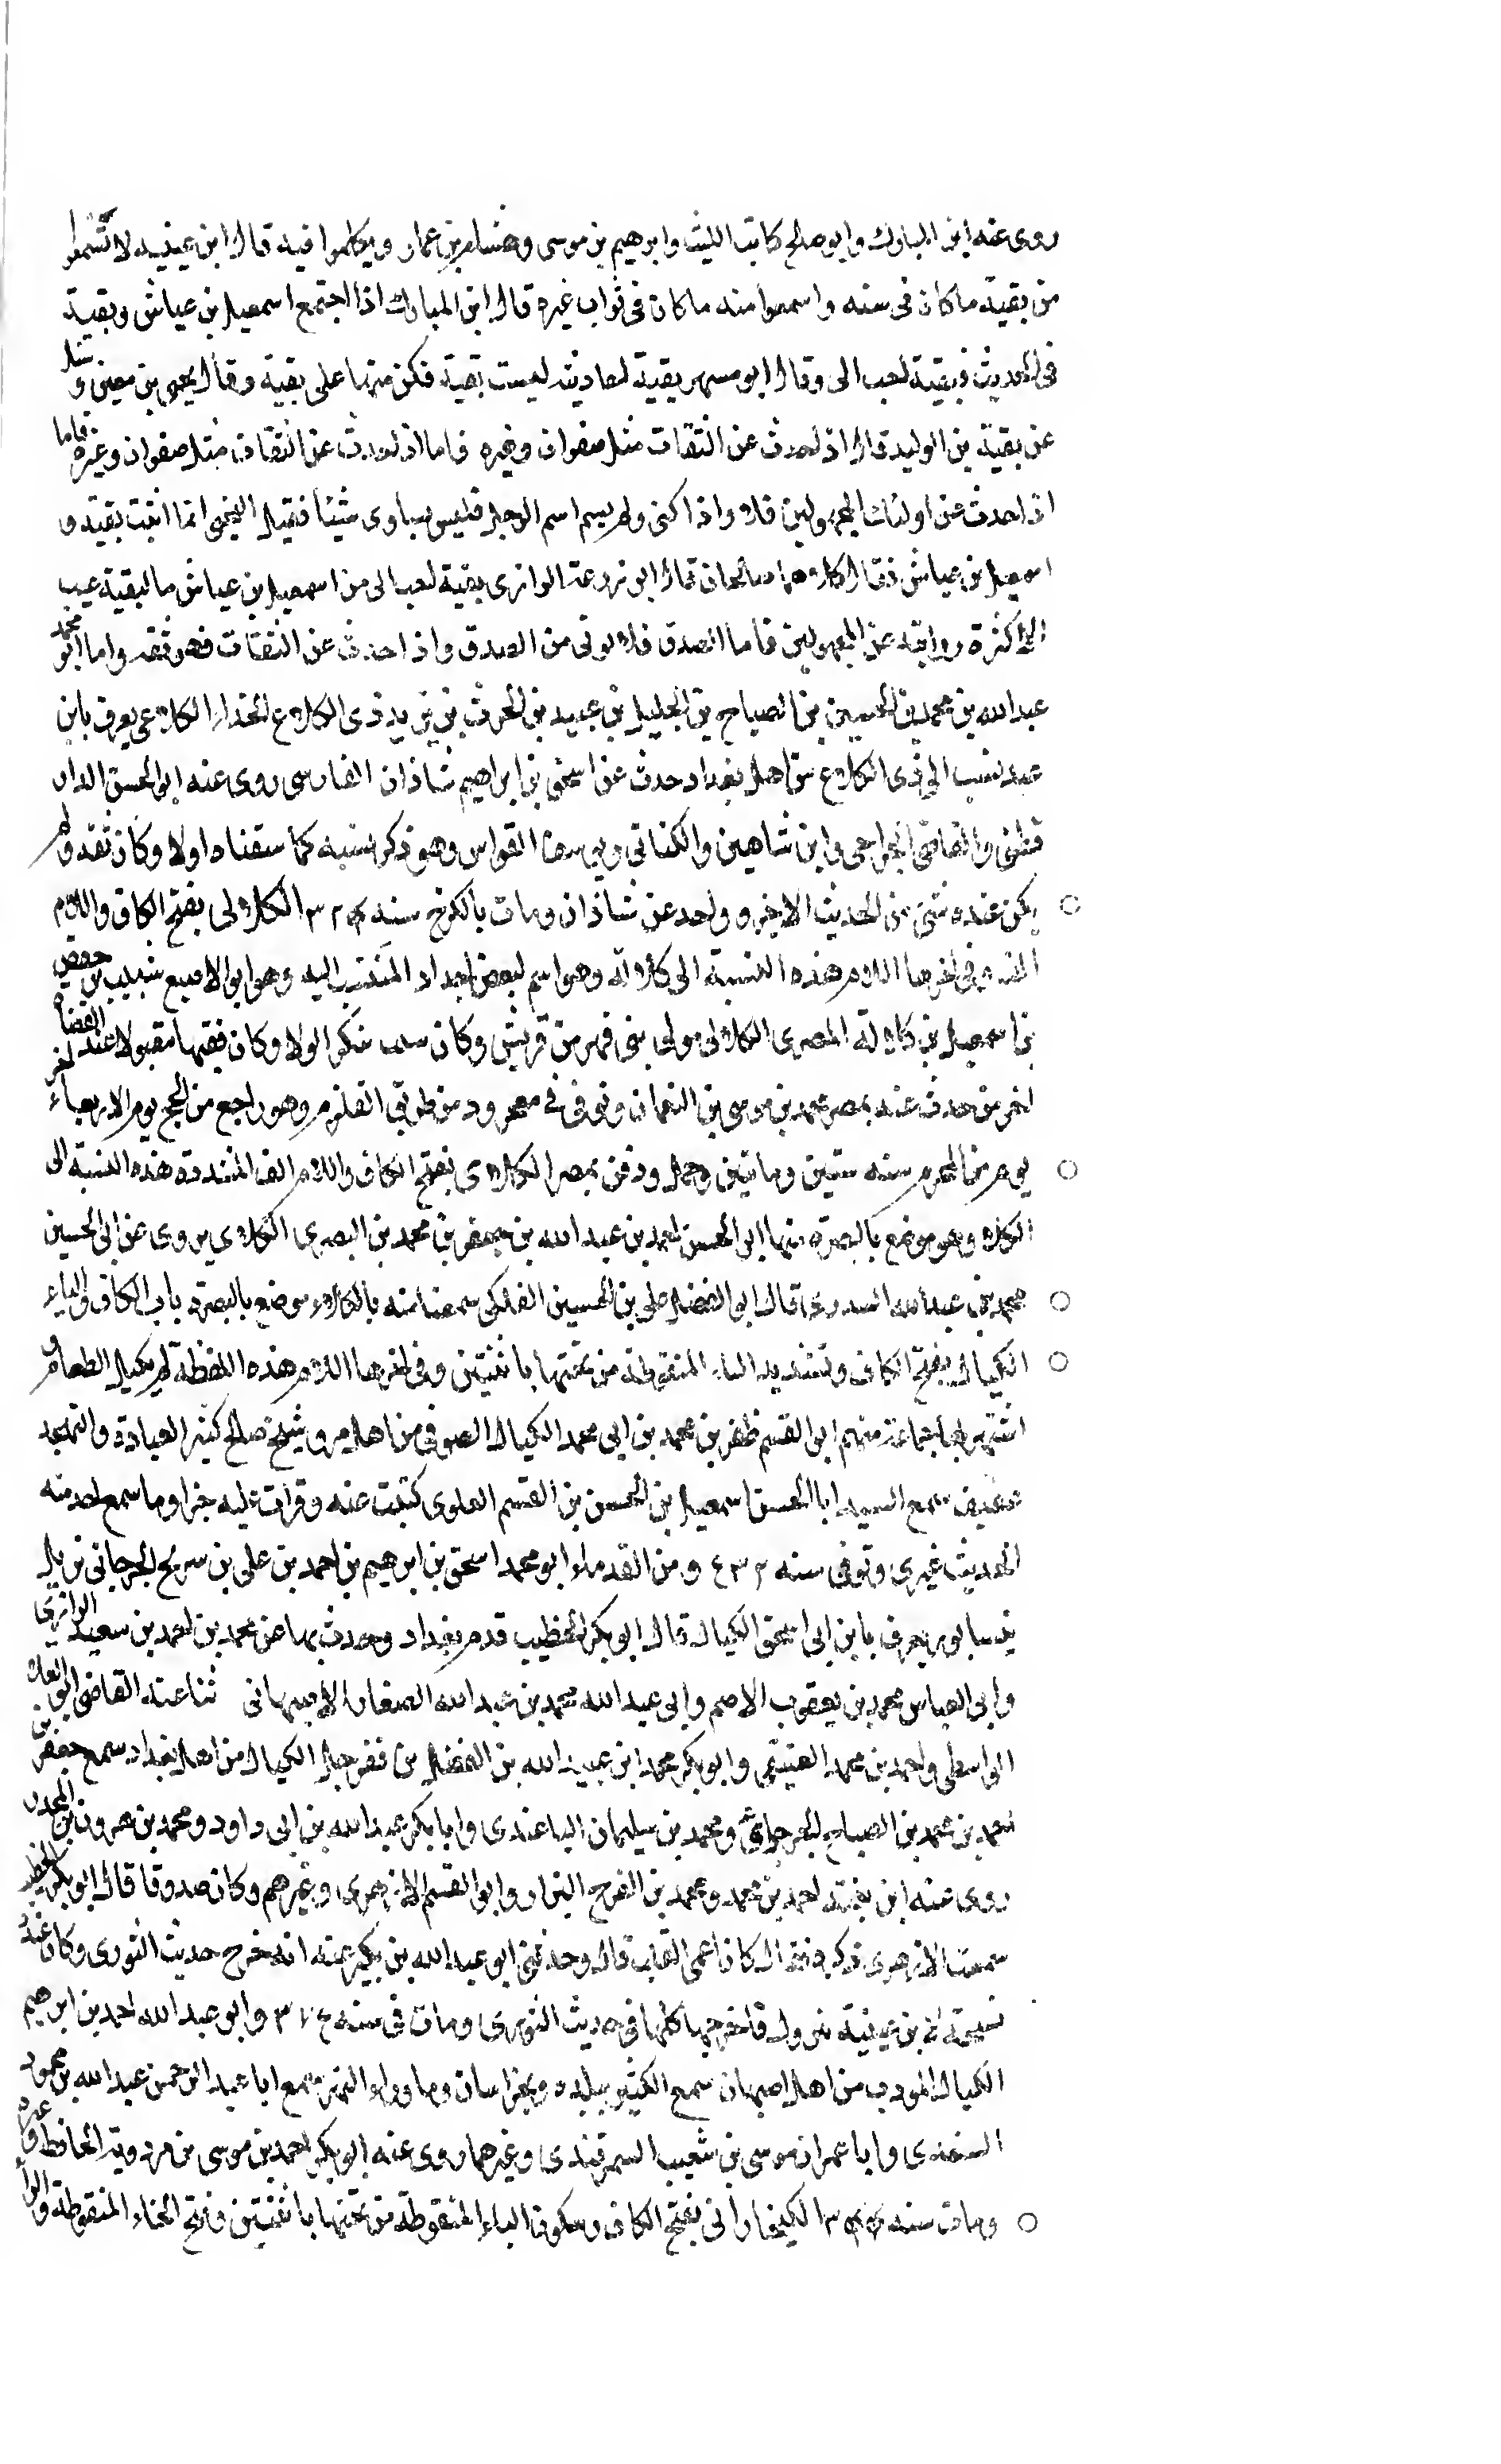 روى عنه ابن المبارك وابو صالح كاتب الليث وابرهيم بن موسى وهشام بن عمار وتكلموا فيه قال ابن عيينه لا تسمعوا
من بقية ما كان فى سنه واسمعوا منه ما كان فى ثواب غيره قال ابن المبارك اذا اجتمع اسمعيل بن عياش وبقية
فى الحديث فبقية احب الى وقال ابو مسهر بقية احاديثه ليست بقية فكن منها على بقية وقال يحيى بن معين وسئل
عن بقية بن الوليد قال اذا حدث عن الثقات مثل صفوان وغيره فاما اذا حدث عن الثقات مثل صفوان وغيره فاما
اذا حدث عن اولئك المجهولين فلا واذا كنى ولم يسم اسم الرجل فليس يساوى شيئا فقيل ليحيى انما اثبت بقيته و
اسمعيل بن عياش فقال كلاهما صالحان قال ابو زرعة الرازى بقية احب الى من اسمعيل بن عياش ما لبقية عيب
الا كثرة روايته عن المجهولين فاما الصدق فلا يوتى من الصدق واذا حدث عن الثقات فهو ثقه واما ابو محمد
عبد الله بن محمد بن الحسين بن الصباح بن الخليل بن عبيد بن الحرث بن يزيد ذى الكلاع الكلاعى يعرف بابن
عبد نسب الى ذى الكلاع من اهل بغداد حدث عن اسحق بن ابراهيم شاذان الفارسى روى عنه ابو الحسن الدار
قطنى والقاضى الجراحى وابن شاهين والكتانى ويوسف القواس وهو ذكر نسبه كما سقناه اولا وكان ثقه ولم
يكن عنده شئ من الحديث الا خبر واحد عن شاذان ومات بالكرخ سنه الكلالى بفتح الكاف واللام
الف وفى اخرها اللام هذه النسبة الى كلالة وهو اسم لبعض اجداد المنتسب اليه وهو ابو الاصبغ شبيب بن حفص
بن اسمعيل بن كلالة المصرى الكلالى مولى بنى فهر من قريش وكان ينكر الولا وكان فقيها مقبولا عند القضاة
اخر من حدث عنه بمصر محمد بن موسى بن النعمان وتوفى فى عجرود من طريق القلزم وهو راجع من الحج يوم الاربعاء اخر
يوم من المحرم سنه ستين ومائتين وحمل ودفن بمصر الكلاى بفتح الكاف واللام الف المشددة هذه النسبة الى
الكلا وهو موضع بالبصرة منها ابو الحسن احمد بن عبد الله بن جعفر بن محمد بن البصرى الكلاى يروى عن ابى الحسين
محمد بن عبد الله السدرى قال ابو الفضل على بن الحسين الفلكى سمعنا منه بالكلاء موضع بالبصرة باب الكاف والياء
الكيال بفتح الكاف وتشديد الياء المنقوطة من تحتها باثنتين وفى اخرها اللام هذه اللفظة لمن يكيل الطعام و
اشتهر بها جماعة منهم ابو القسم ظفر بن محمد بن ابى محمد الكيال الصوفى من اهل مرو شيخ صالح كثير العبادة والتهجد
عفيف سمع السيد ابا الحسن اسمعيل بن الحسين بن القسم العلوى كتبت عنه وقرات عليه جزا وما سمع احد منه
الحديث غيرى وتوفى سنه ومن القدماء ابو محمد اسحق بن ابرهيم بن احمد بن على بن سريج الجرجانى نزيل
نيسابور يعرف بابن ابى اسحق الكيال قال ابو بكر الخطيب قدم بغداد وحدث بها عن محمد بن احمد بن سعيد الرازى
وابى العباس محمد بن يعقوب الاصم وابى عبد الله محمد بن عبد الله الصفار الاصبهانى ثنا عنه القاضى ابو العلا
الواسطى واحمد بن محمد العتيقى وابو بكر محمد ابن عبيد الله بن الفضل بن قفرجل الكيال من اهل بغداد سمع جعفر بن
احمد بن محمد بن الصباح الجرجرائى ومحمد بن سليمان الباغندى وابا بكر عبد الله بن ابى داود ومحمد بن هرون بن المجدر
روى عنه ابن بنته احمد بن محمد ومحمد بن الفرج البزار وابو القسم الازهرى وغيرهم وكان صدوقا قال ابو بكر الخطيب
سمعت الازهرى ذكره فقال كان اعمى القلب قال وحدثنى ابو عبد الله بن بكير عنه انه خرج حديث الثورى وكان عنده
نسخة لابن عيينة بنزول فاخرجها كلها فى حديث الثورى ومات فى سنه وابو عبد الله احمد بن ابرهيم
الكيال المودب من اهل اصبهان سمع الكثير ببلده وبخراسان وما وراء النهر سمع ابا عبد الرحمن عبد الله بن محمود
السعدى وابا عمران موسى بن شعيب السمرقندى وغيرهما روى عنه ابو بكر احمد بن موسى بن مردويه الحافظ وغيره
ومات سنه الكيخارانى بفتح الكاف وسكون الياء المنقوطة من تحتها باثنتين وفتح الخاء المنقوطة والراء